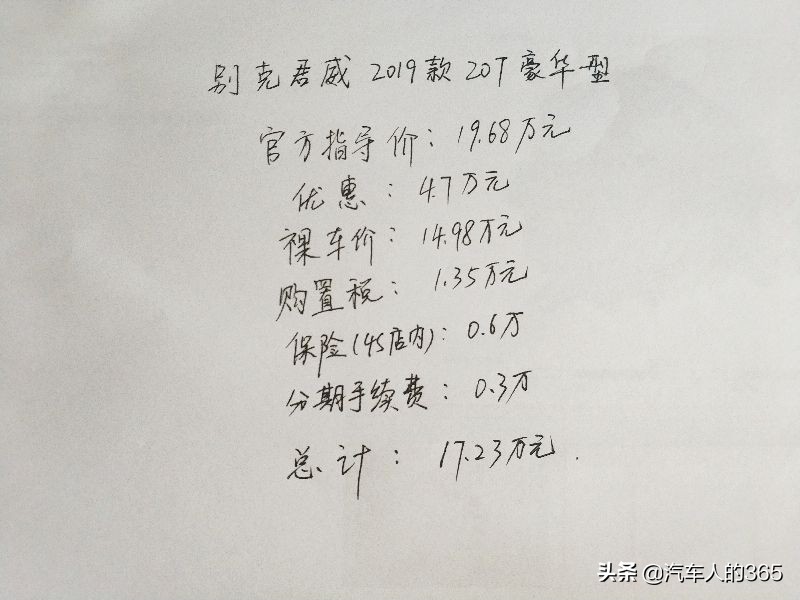 别克君威 2019款 20T豪华型
官方指导价：19.68万元
优惠：4.7万元
裸车价：14.98万元
购置税：1.35万元
保险(4S店内)：0.6万
分期手续费：0.3万
总计：17.23万元.
头条 @汽车人的365